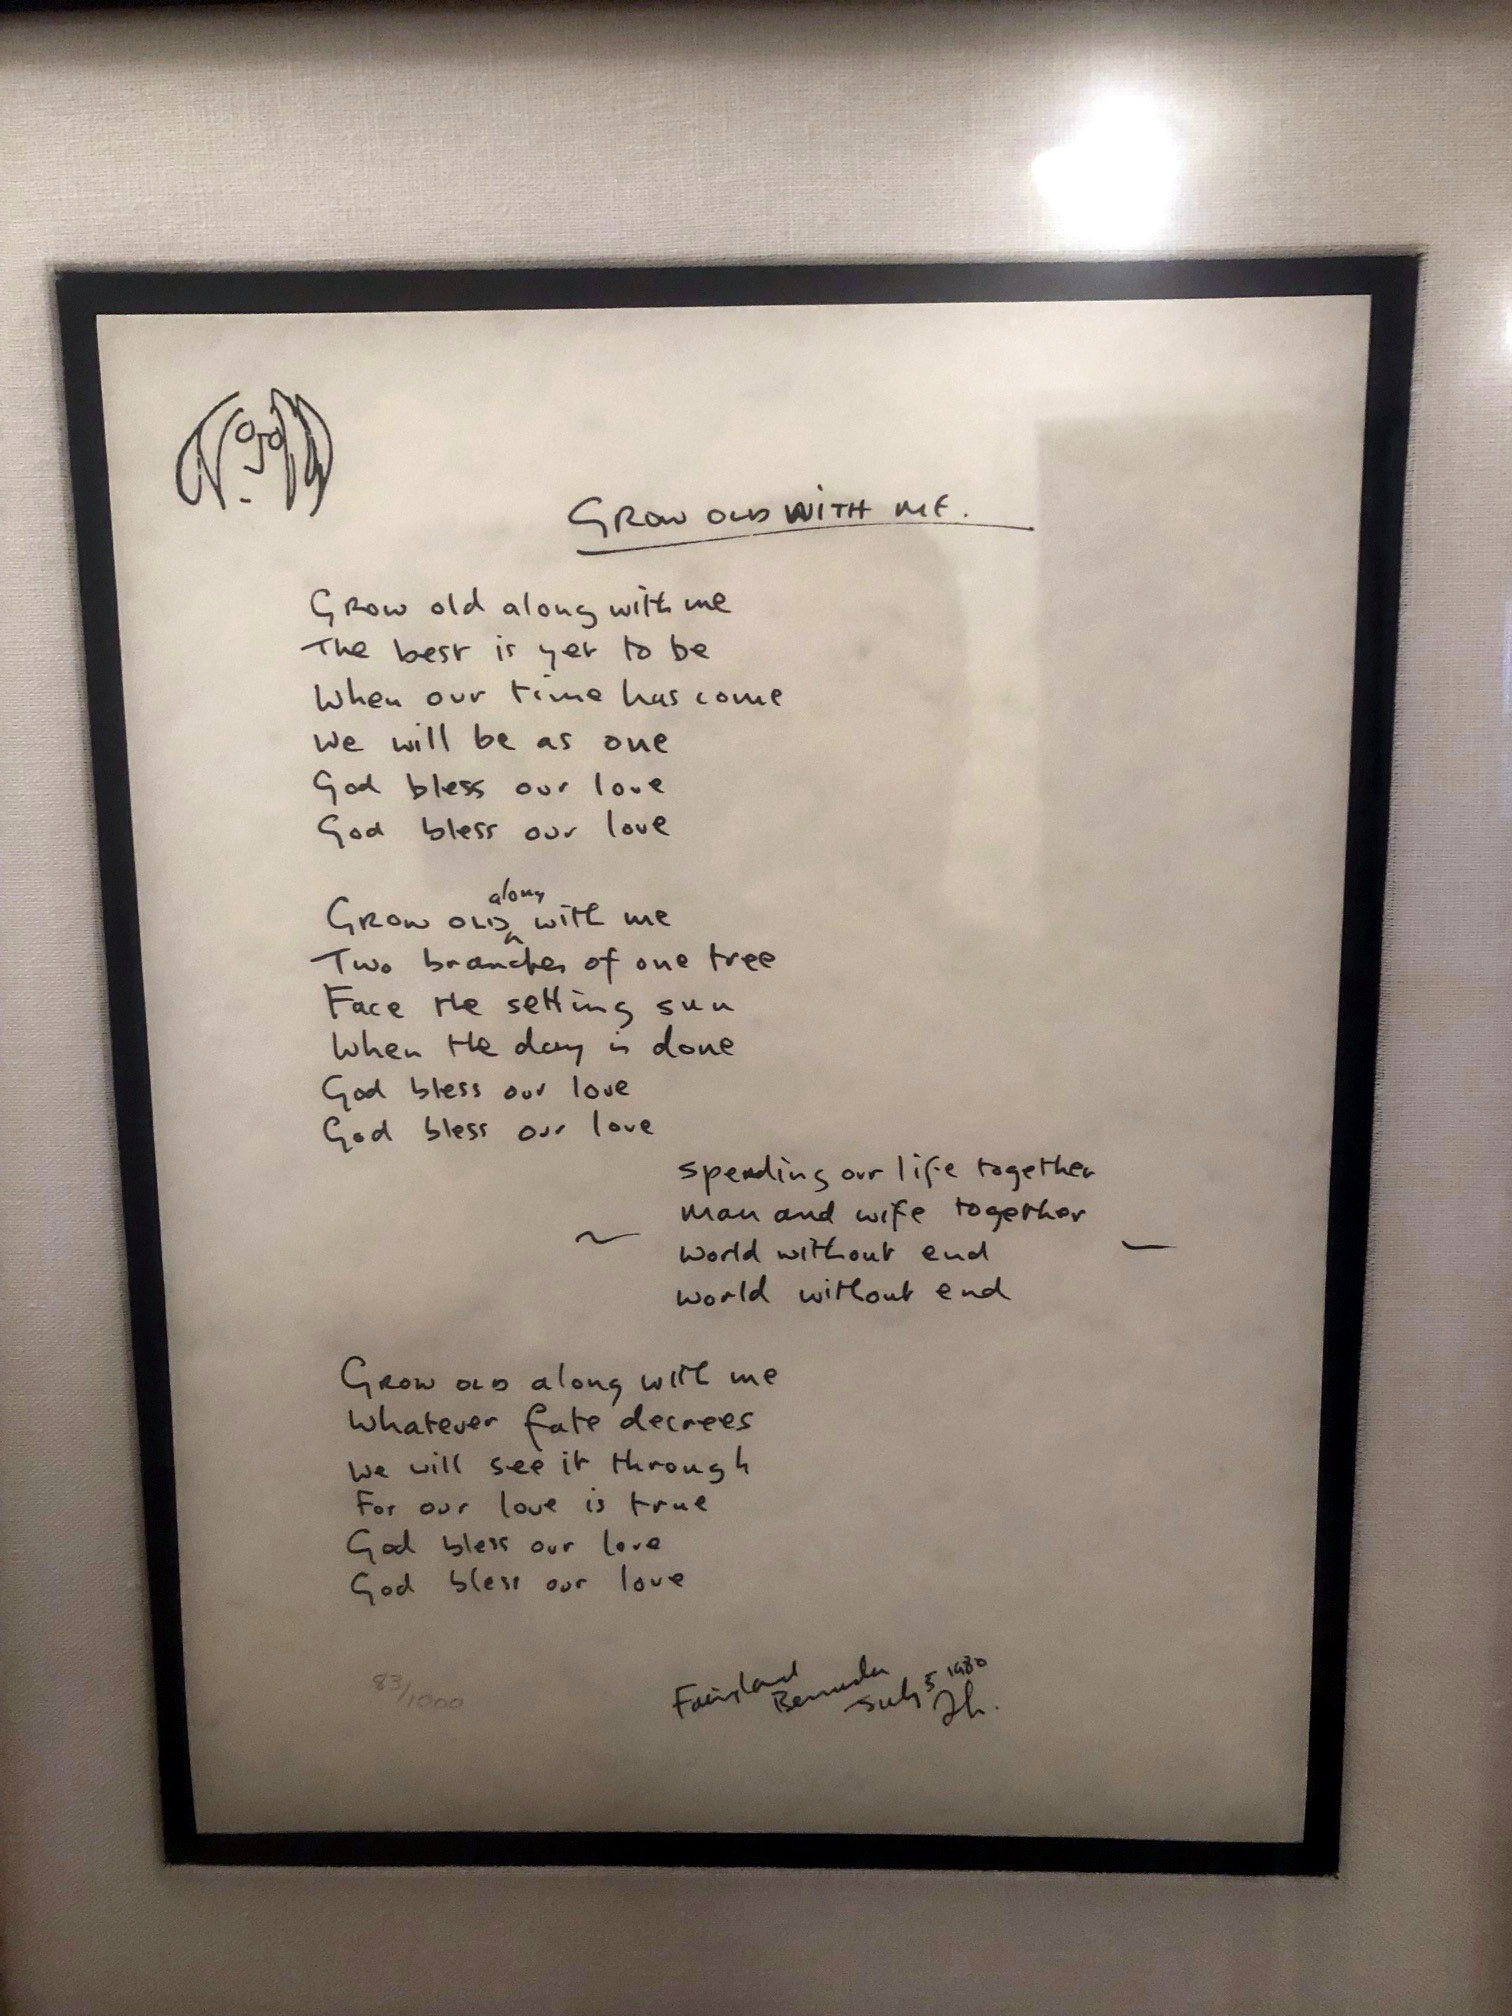 GROW OLD WITH ME.
Grow old along with me
The best is yet to be
When our time has come
We will be as one
God bless our love
God bless our love
along
GROW OLD with me
Two branches of one tree
Face the setting sun
When the day is done
God bless our love
God bless our love
spending our life together
man and wife together
world without end
world without end
GROW OLD along with me
Whatever fate decrees
We will see it through
For our love is true
God bless our love
God bless our love
83/1000
Fairyland
Bermuda
July 5 1980